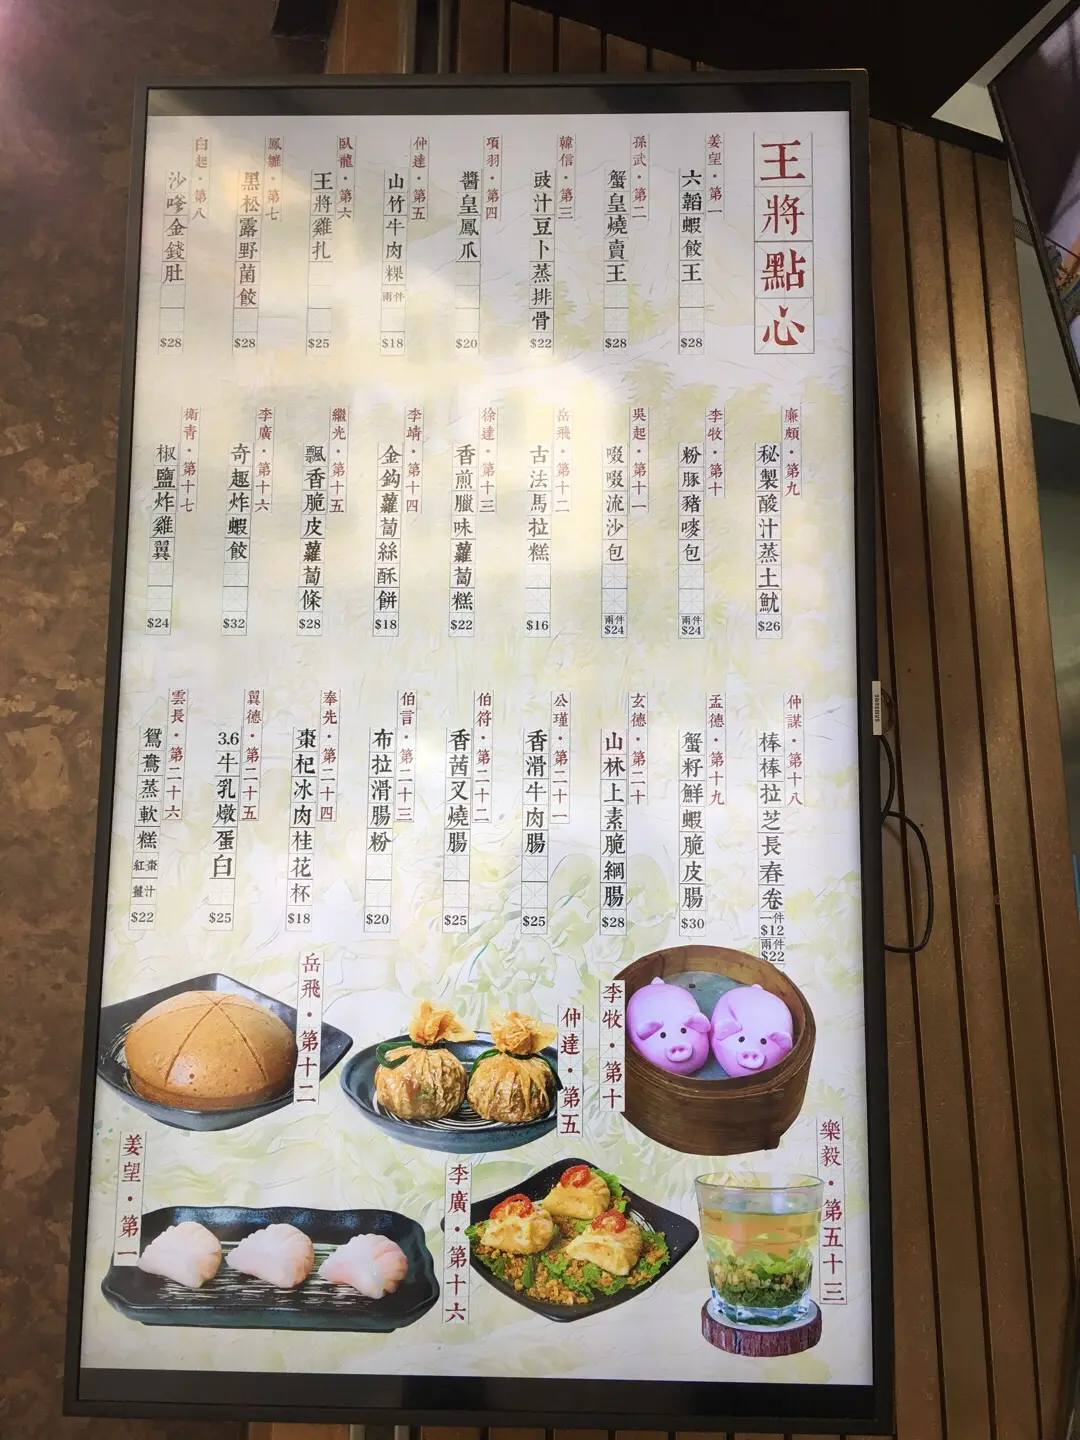 王將點心
姜望・第一
六韜蝦餃王
$28
孫武・第二
蟹皇燒賣王
$28
韓信・第三
豉汁豆卜蒸排骨
$22
項羽・第四
醬皇鳳爪
$20
仲達・第五
山竹牛肉粿
兩件
$18
臥龍・第六
王將雞扎
$25
鳳雛・第七
黑松露野菌餃
$28
白起・第八
沙嗲金錢肚
$28
廉頗・第九
秘製酸汁蒸土魷
$26
李牧・第十
粉豚豬嘜包
兩件
$24
吳起・第十一
啜啜流沙包
兩件
$24
岳飛・第十二
古法馬拉糕
$16
徐達・第十三
香煎臘味蘿蔔糕
$22
李靖・第十四
金鈎蘿蔔絲酥餅
$18
繼光・第十五
飄香脆皮蘿蔔條
$28
李廣・第十六
奇趣炸蝦餃
$32
衛青・第十七
椒鹽炸雞翼
$24
仲謀・第十八
棒棒拉芝長春卷
一件
$12
兩件
$22
孟德・第十九
蟹籽鮮蝦脆皮腸
$30
玄德・第二十
山林上素脆網腸
$28
公瑾・第二十一
香滑牛肉腸
$25
伯符・第二十二
香茜叉燒腸
$25
伯言・第二十三
布拉滑腸粉
$20
奉先・第二十四
棗杞冰肉桂花杯
$18
翼德・第二十五
3.6牛乳燉蛋白
$25
雲長・第二十六
鴛鴦蒸軟糕
紅棗
薑汁
$22
李牧・第十
仲達・第五
岳飛・第十二
樂毅・第五十三
李廣・第十六
姜望・第一
SAMSUNG